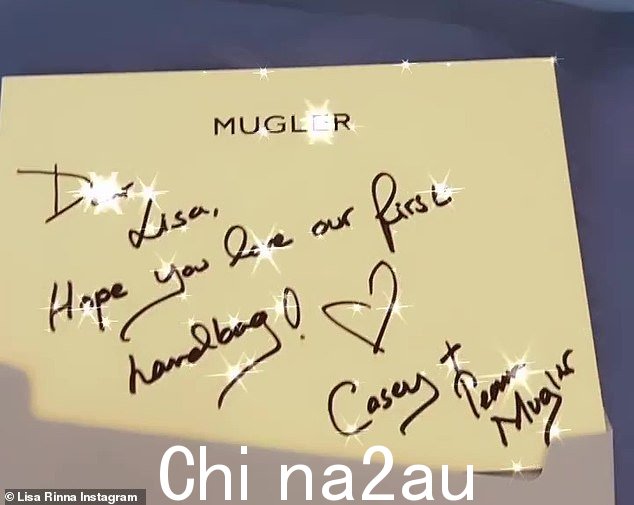 MUGLER
Dear
Lisa,
Hope you love our first
handbag! ♡
Casey + Team
Mugler
Chi na2au
© Lisa Rinna Instagram